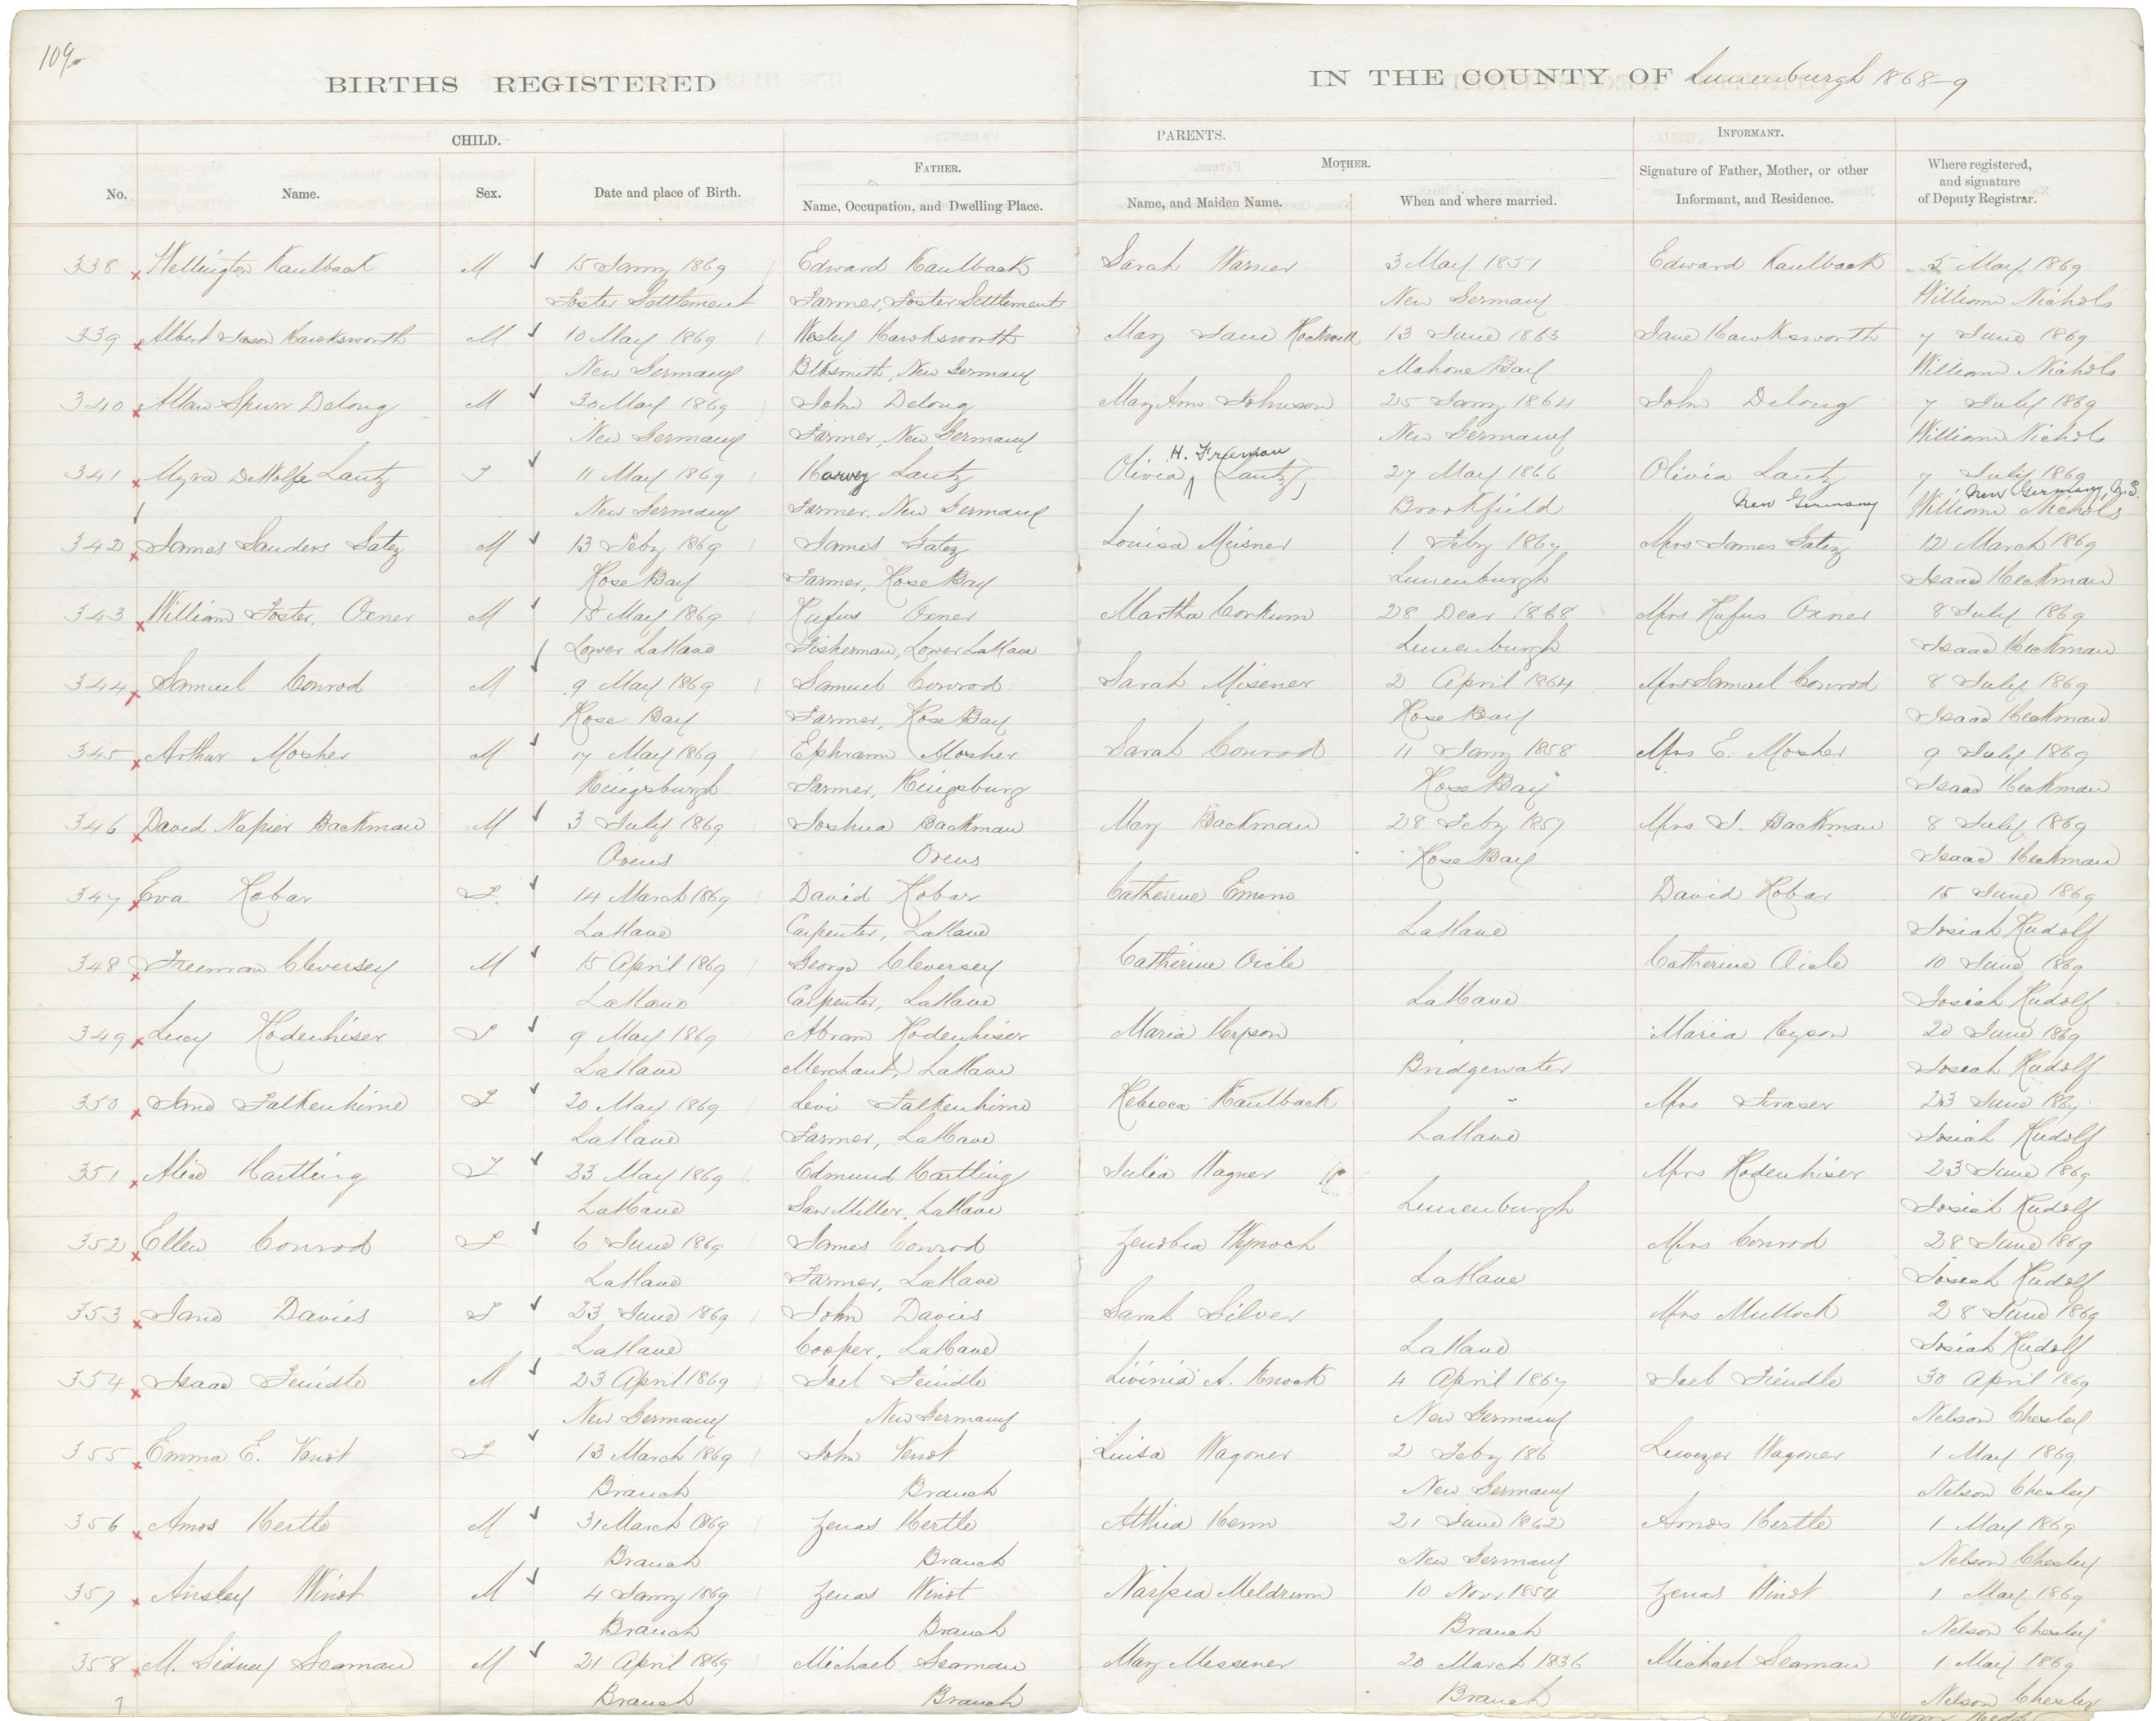 109
BIRTHS REGISTERED IN THE COUNTY OF Lunenburgh 1868-9
CHILD. PARENTS. INFORMANT.
FATHER. MOTHER.
No. Name. Sex. Date and place of Birth. Name, Occupation, and Dwelling Place. Name, and Maiden Name. When and where married. Signature of Father, Mother, or other Informant, and Residence. Where registered, and signature of Deputy Registrar.
338 Wellington Kaulback M 15 Jany 1869 Edward Kaulback Sarah Warner 3 May 1851 Edward Kaulback 5 May 1869
Foster Settlement Farmer, Foster Settlement New Germany William Nichols
339 Albert Jason Hawksworth M 10 May 1869 Wesley Hawksworth Mary Jane Rockwell 13 June 1863 Jane Hawksworth 7 June 1869
New Germany Blksmith, New Germany Mahone Bay William Nichols
340 Allan Spurr Delong M 30 May 1869 John Delong Mary Ann Johnson 25 Jany 1864 John Delong 7 July 1869
New Germany Farmer, New Germany New Germany William Nichols
341 Myra DeWolfe Lantz F 11 May 1869 Harvey Lantz Olivia H. Freeman (Lantz) 27 May 1866 Olivia Lantz 7 July 1869
New Germany Farmer. New Germany Brookfield New Germany New Germany, N.S. William Nichols
342 James Sanders Gatez M 13 Feby 1869 James Gatez Louisa Meisner 1 Feby 1867 Mrs James Gatez 12 March 1869
Rose Bay Farmer, Rose Bay Lunenburgh Isaac Heckman
343 William Foster Oxner M 15 May 1869 Rufus Oxner Martha Corkum 28 Decr 1868 Mrs Rufus Oxner 8 July 1869
Lower LaHave Fisherman, Lower LaHave Lunenburgh Isaac Heckman
344 Samuel Conrod M 9 May 1869 Samuel Conrod Sarah Misener 2 April 1864 Mrs Samuel Conrod 8 July 1869
Rose Bay Farmer, Rose Bay Rose Bay Isaac Heckman
345 Arthur Mosher M 17 May 1869 Ephraim Mosher Sarah Conrod 11 Jany 1858 Mrs E. Mosher 9 July 1869
Kingsburgh Farmer, Kingsburg Rose Bay Isaac Heckman
346 David Napier Backman M 3 July 1869 Joshua Backman Mary Backman 28 Feby 1857 Mrs J. Backman 8 July 1869
Ovens Ovens Rose Bay Isaac Heckman
347 Eva Robar F. 14 March 1869 David Robar Catherine Emeno David Robar 15 June 1869
LaHave Carpenter, LaHave LaHave Josiah Rudolf
348 Freeman Cleversey M 15 April 1869 George Cleversey Catherine Oicle Catherine Oicle 10 June 1869
LaHave Carpenter, LaHave LaHave Josiah Rudolf
349 Lucy Rodenhiser F 9 May 1869 Abram Rodenhiser Maria Hyson Maria Hyson 20 June 1869
LaHave Merchant, LaHave Bridgewater Josiah Rudolf
350 Jane Falkenhime F 20 May 1869 Levi Falkenhime Rebecca Kaulback " Mrs Fraser 23 June 1869
LaHave Farmer, LaHave LaHave Josiah Rudolf
351 Alice Hartling F 23 May 1869 Edmund Hartling Julia Wagner Mrs Rodenhiser 23 June 1869
LaHave Saw Miller, LaHave Lunenburgh Josiah Rudolf
352 Ellen Conrod F 6 June 1869 James Conrod Zenobia Wynoch Mrs Conrod 28 June 1869
LaHave Farmer, LaHave LaHave Josiah Rudolf
353 Jane Davies F 23 June 1869 John Davies Sarah Silver Mrs Mullock 28 June 1869
LaHave Cooper, LaHave LaHave Josiah Rudolf
354 Isaac Feindle M 23 April 1869 Joel Feindle Livinia A. Knock 4 April 1867 Joel Feindle 30 April 1869
New Germany New Germany New Germany Nelson Chesley
355 Emma E. Venot F 13 March 1869 John Venot Luisa Wagoner 2 Feby 186 Wagoner 1 May 1869
Branch Branch New Germany Nelson Chesley
356 Amos Hertle M 31 March 1869 Zenas Hertle Althia Henn 21 June 1862 Amos Hertle 1 May 1869
Branch Branch New Germany Nelson Chesley
357 Ansley Winot M 4 Jany 1869 Zenas Winot Meldrum 10 Novr 1854 Zenas Winot 1 May 1869
Branch Branch Branch Nelson Chesley
358 M. Sidney Seaman M 21 April 1869 Michael Seaman Mary Messener 20 March 1836 Michael Seaman 1 May 1869
Branch Branch Branch Nelson Chesley